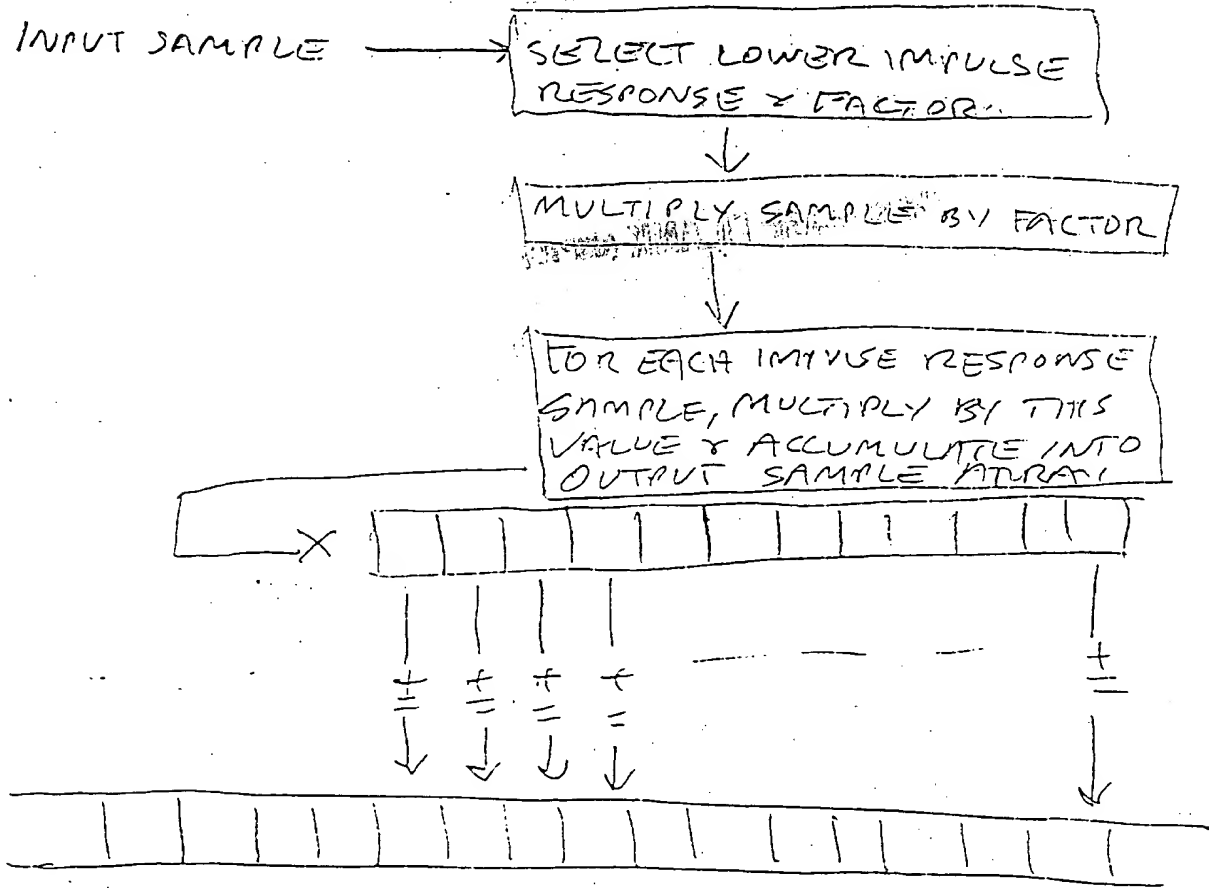 INPUT SAMPLE
SELECT LOWER IMPULSE
RESPONSE & FACTOR
MULTIPLY SAMPLE BY FACTOR
FOR EACH IMPULSE RESPONSE
SAMPLE, MULTIPLY BY THIS
VALUE & ACCUMULATE INTO
OUTPUT SAMPLE ARRAY
X
+ + + + +
= = = = =